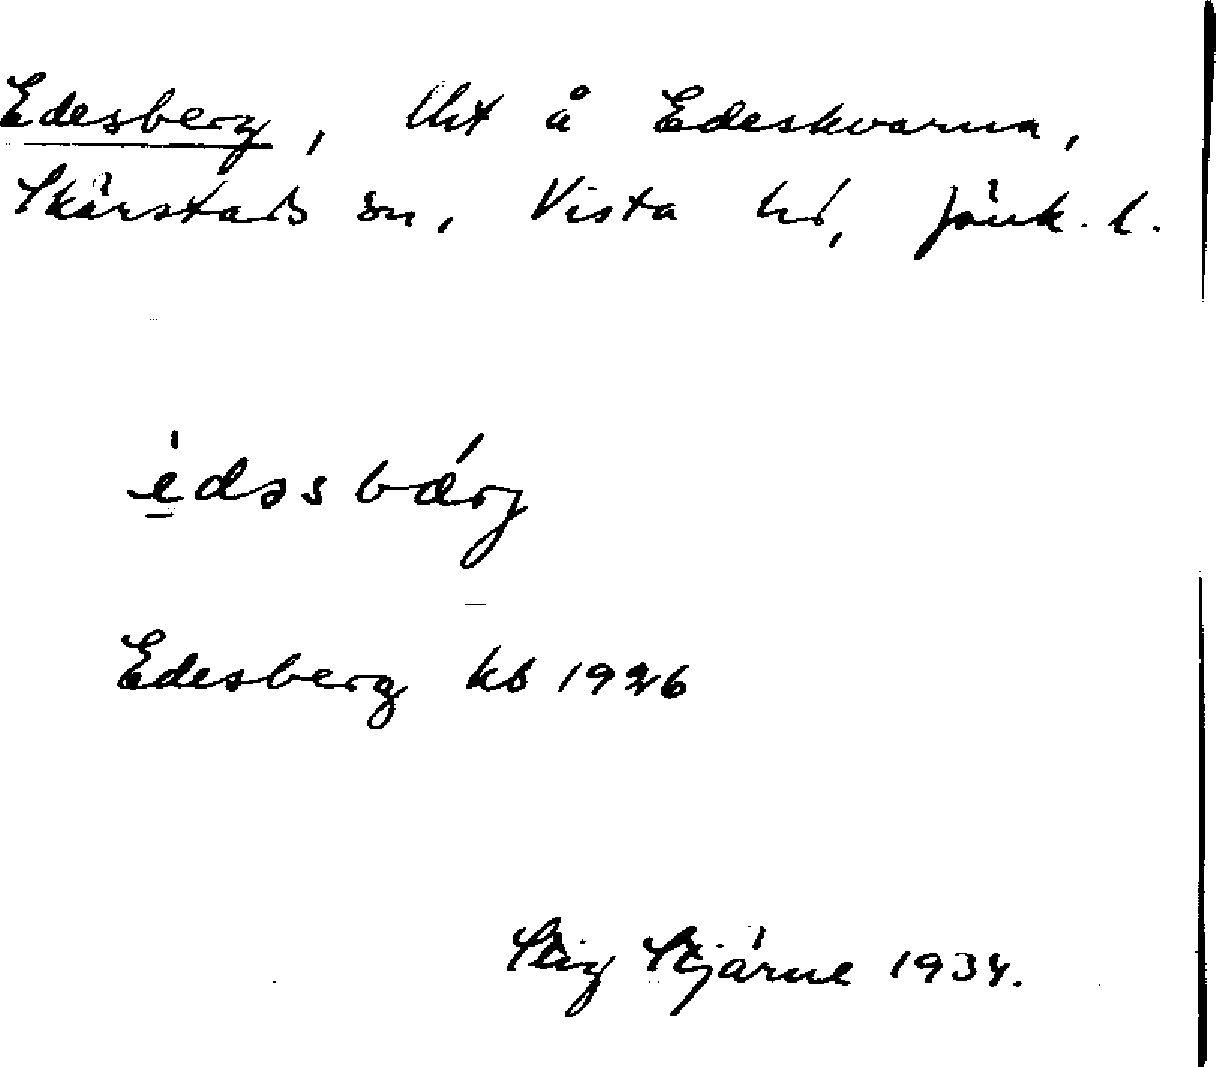 Edesberg, lht å Edeskvarna,
Skärstads sn, Vista hd, Jönk. l.
èdəsbǽrj
Edesberg kb 1926
Stig Stjärne 1934.